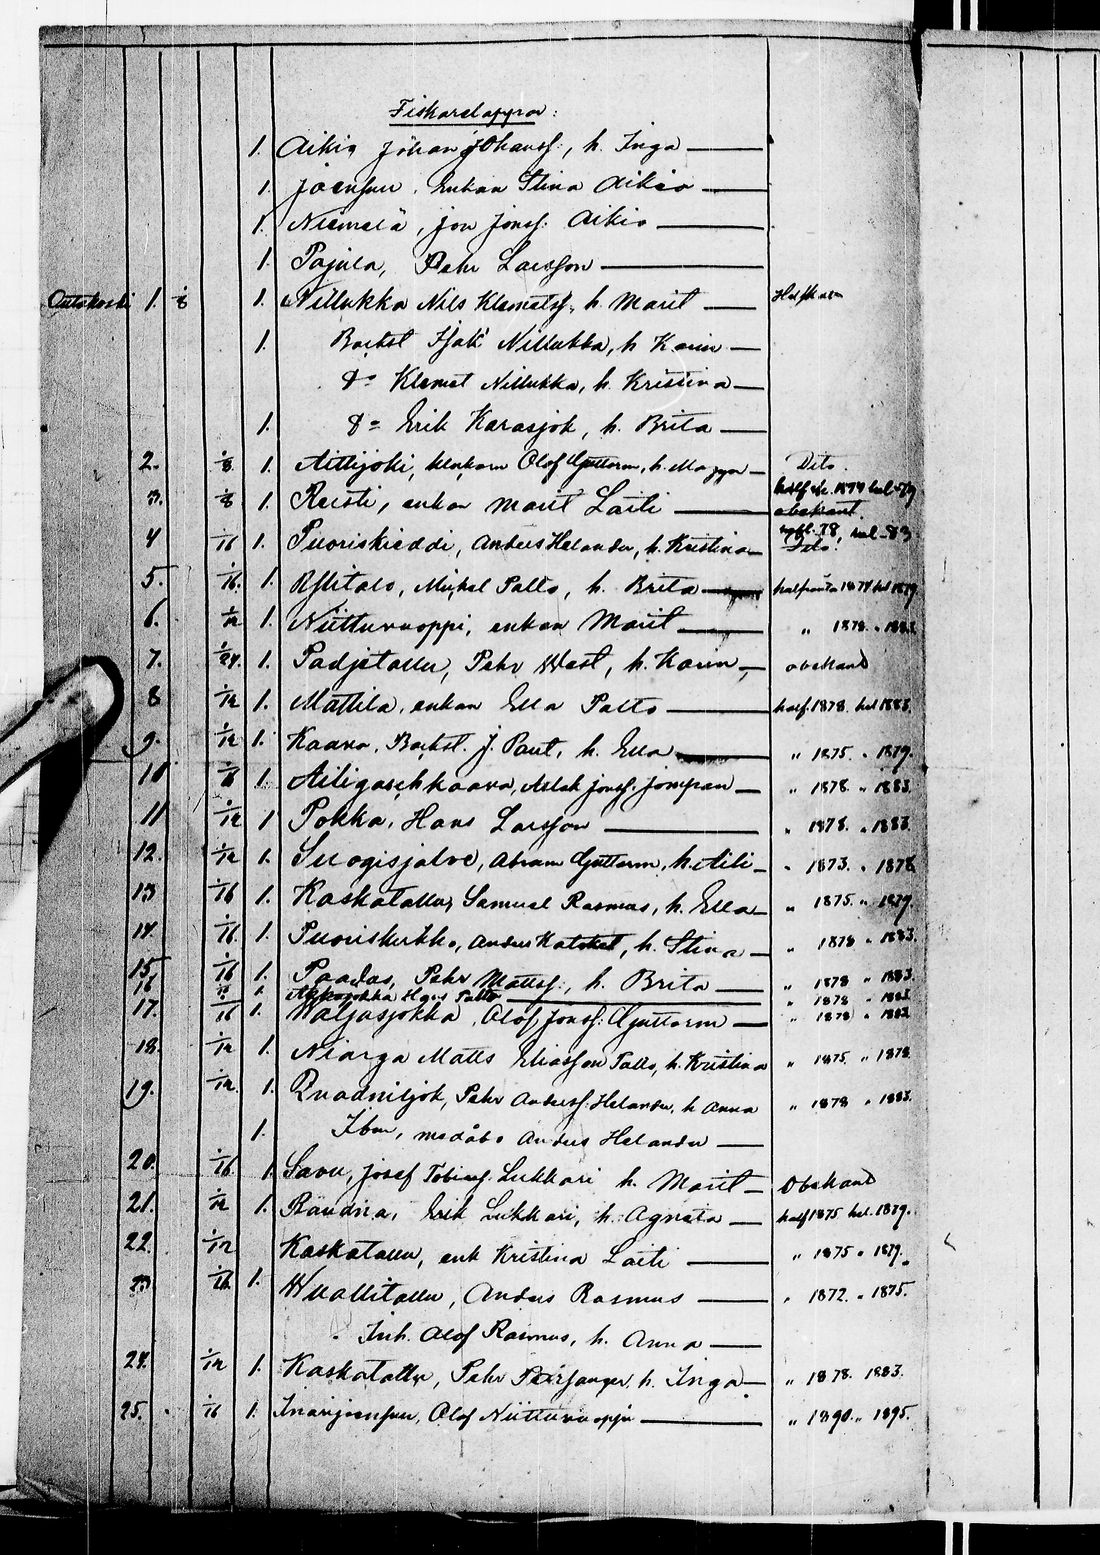 Fiskarelappar:
1. Aikio Johan Johanss:, h. Inga —
1. Joensuu, Enkan Stina Aikio —
1. Niemelä, Jon Jonss: Aikio —
1. Pajula, Pehr Larsson —
Outakoski 1. 1/8 1. Nillukka Nils Klemetss:, h. Marit —
1. Backst. Isak Nillukka, h. Karin —
Do Klemet Nillukka, h. Kristina —
1. Do Erik Karasjok, h. Brita —
2. 1/8 1. Olof Guttorm, h. — Dito.
3. 1/8 1. Reisti, enkan Marit Laiti — half sk. 1874 hel -79
obekant
4 1/16 1. Puoriskieddi, Anders Helander, h. Kristina — 78, hel -83
Dito.
5. 1/16. 1. Mickel Palto, h. Brita — 1874 hel 1879
6. 1/12 1. Niitturuoppi, enkan Marit — " 1878. " 1883.
7. 1/24. 1. Padjetallu, Pehr West, h. Karin, — obekand
8 1/12 1. Mattila, enkan Ella Palto — half. 1878. hel 1883.
9. 1/12 1. Kaava, Backst. J. Paut, h. Ella — " 1875. " 1879.
10 1/8 1. Ailigaschkaava, Aslak Jonss. Jompan — " 1878. " 1883.
11 1/12 1 Pokka, Hans Larsson — " 1878. " 1883.
12. 1/12 1. Suogisjalve, Abram Guttorm, h. Aili — " 1873. " 1878
13 1/16 1. Kaskatallu, Samuel Rasmus, h. Ella — " 1875. " 1879.
14. 1/16 1. Puoriskirkko, Anders Katsket, h. Stina — " 1878 " 1883.
15 1/16 1. Paadas, Pehr Mattss:, h. Brita — " 1878 " 1883.
16 1. Hans Palto — " 1878 " 1883.
17. 1/16 1. Waljasjokka, Olof Jonss: Guttorm — " 1878 " 1883
18. 1/12 1. Niarga Matts Eliasson Palto, h. Kristina " 1875. " 1878
19. 1/12. 1. Pehr Anderss: Helander, h. Anna " 1878 " 1883.
1. Ibm, medåbo Anders Helander —
20. 1/16 1. Savu, Josef Tobiass. Lukkari h. Marit — Obekand
21. 1/12 1. Raudna, Erik Lukkari, h. Agneta — half 1875 hel. 1879.
22. 1/12 Kaskatallu, enk Kristina Laiti — " 1875 " 1879.
23 1/16. 1. Wuollitallu, Anders Rasmus — " 1872. " 1875.
Inh. Olof Rasmus, h. Anna —
24. 1/12 1. Kaskatallu, Pehr Pärsanger, h. Inga — " 1878. 1883.
25. 1/16 1. Inarijoensuu, Olof Niitturuoppi — " 1890. " 1895.